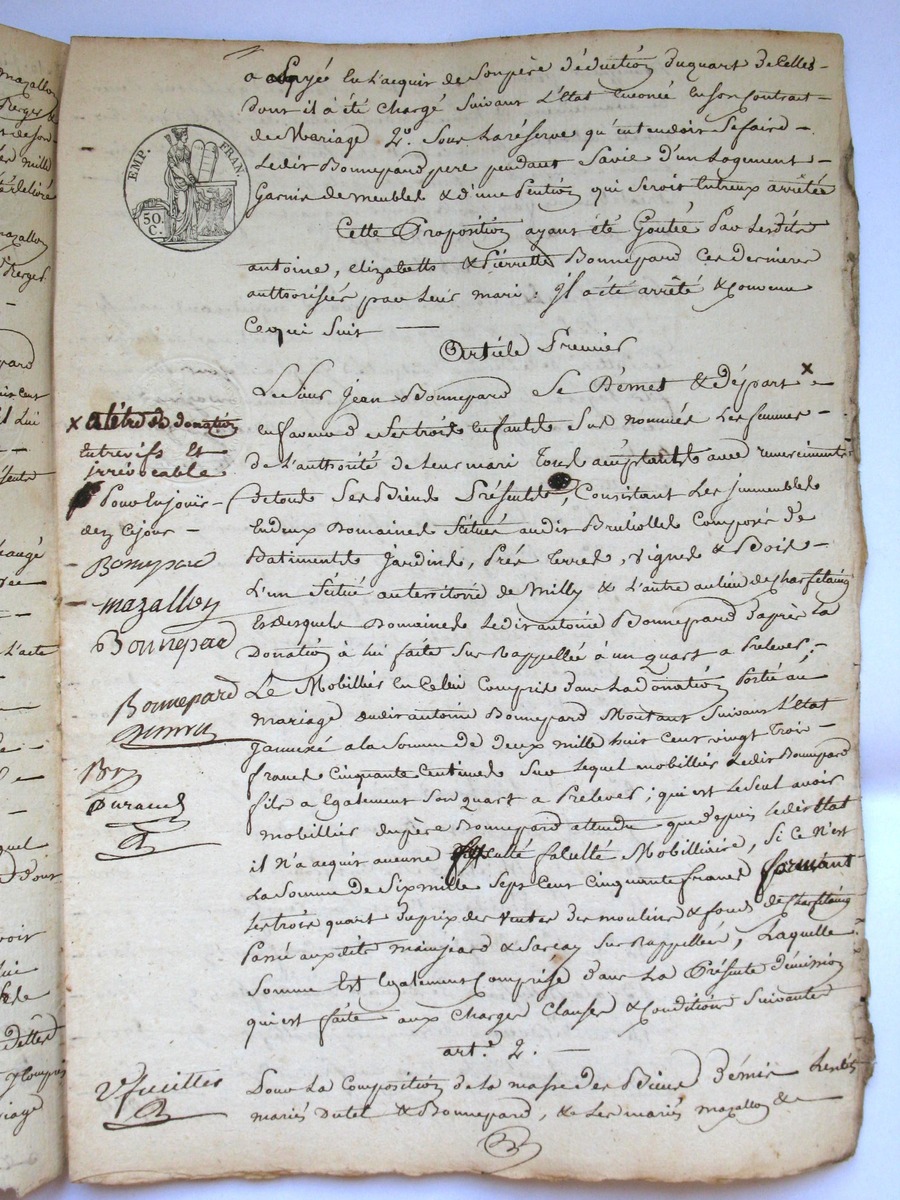 a Payé En l'acquit de Son père déduction du quart de Celles
dont il a été Chargé Suivant l'Etat Enoncé En son Contrat
de Mariage 2°. Sous la réserve qu'entendoit Se faire
Ledit Bonnepard pere pendant Sa vie d'un Logement
Garnie de meubles & d'une Pention qui Seroit Entreux arrêtée
EMP. FRAN.
50. C.
Cette Proposition ayant été Goutée Par lesdits
antoine, elizabeth & Pierrette Bonnepard Ces dernieres
authorisées par Leurs mari. Il a été arrêté & Convenu
Ce qui Suit
Article Premier
Le Sieur Jean Bonnepard Se Démet & Départ x
en faveur de Ses trois Enfants Sus nommés Les femmes
de l'authorité de Leurs mari Tous acceptants avec remerciments
de tous Ses Biens Présents, Consistant Les immeubles
En deux Domaines Scitués audit Brulliolles Composés de
Batiments Jardins, Prés Terres, vignes & Bois
L'un Scitué au territoire de Milly & L'autre au lieu de
Esdesquels Domaines Ledit antoine Bonnepard d'après la
Donation à lui faite Sus Rappellée à un quart a Prelever;
Le Mobillier En Celui Compris dans La donation Portée au
mariage dudit antoine Bonnepard Montant Suivant l'Etat
y annexé a la Somme de deux mille huit Cent vingt Trois
francs Cinquante Centimes Sur lequel mobillier Ledit Bonnepard
fils a Egalement Son quart a Prelever; qui est le Seul avoir
mobillier du père Bonnepard attendu que depuis ledit Etat
il n'a acquit aucune faculté Mobilliaire, Si Ce n'est
La Somme de Six mille Sept Cent Cinquante francs formant
Les trois quart du prix des Ventes des moulins & fonds de
Passé auxdits & Sus Rappellées, Laquelle
Somme Est Egalement Comprise dans La Présente démission
qui est faite aux Charges Clauses & Conditions Suivantes
art.e 2.
Pour La Composition de la masse des Biens Démis Lesdits
mariés Dutel & Bonnepard, & Les mariés mazallon &
x a titre de donation
Entrevifs Et
irrévocable
Pour En jouir
dez Ce jour
Bonnepard
Mazallon
Bonnepard
Bonnepard
Durand
2e feuilles